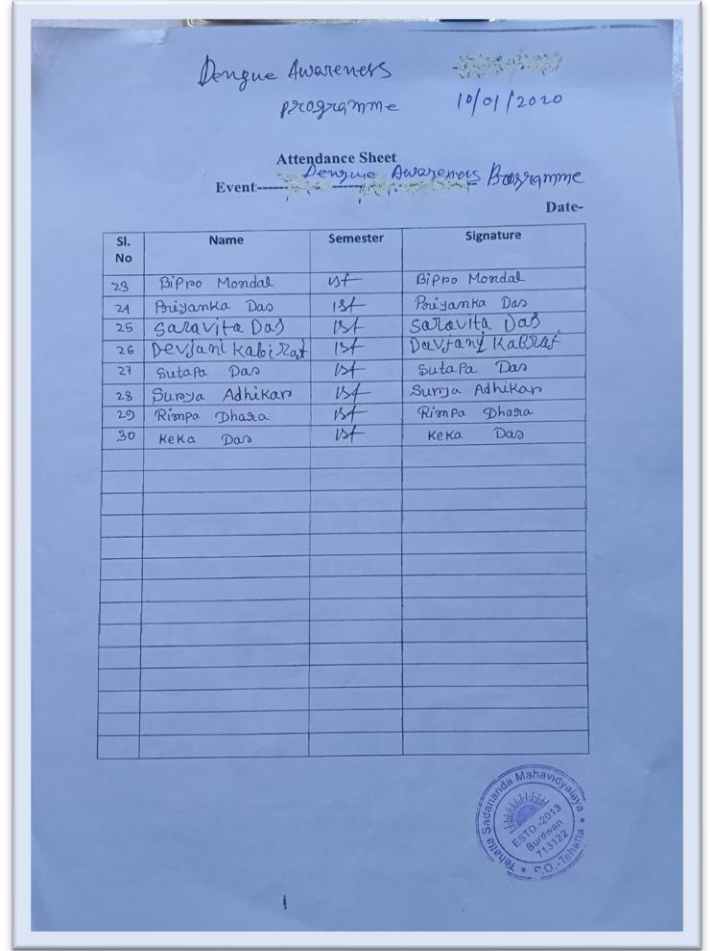 Dengue Awareness
Programme
10/01/2020
Attendance Sheet
Event------ Dengue Awareness Programme
Date-
Sl. No Name Semester Signature
23 Bipro Mondal 1st Bipro Mondal
24 Priyanka Das 1st Priyanka Das
25 Saravita Das 1st Saravita Das
26 Devjani Kabiraj 1st Devjani Kabraj
27 Sutapa Das 1st Sutapa Das
28 Surya Adhikar 1st Surya Adhikar
29 Rimpa Dhara 1st Rimpa Dhara
30 Keka Das 1st Keka Das
Tehatta Sadananda Mahavidyalaya
ESTD.-2013
Burdwan
713122
P.O.-Tehatta